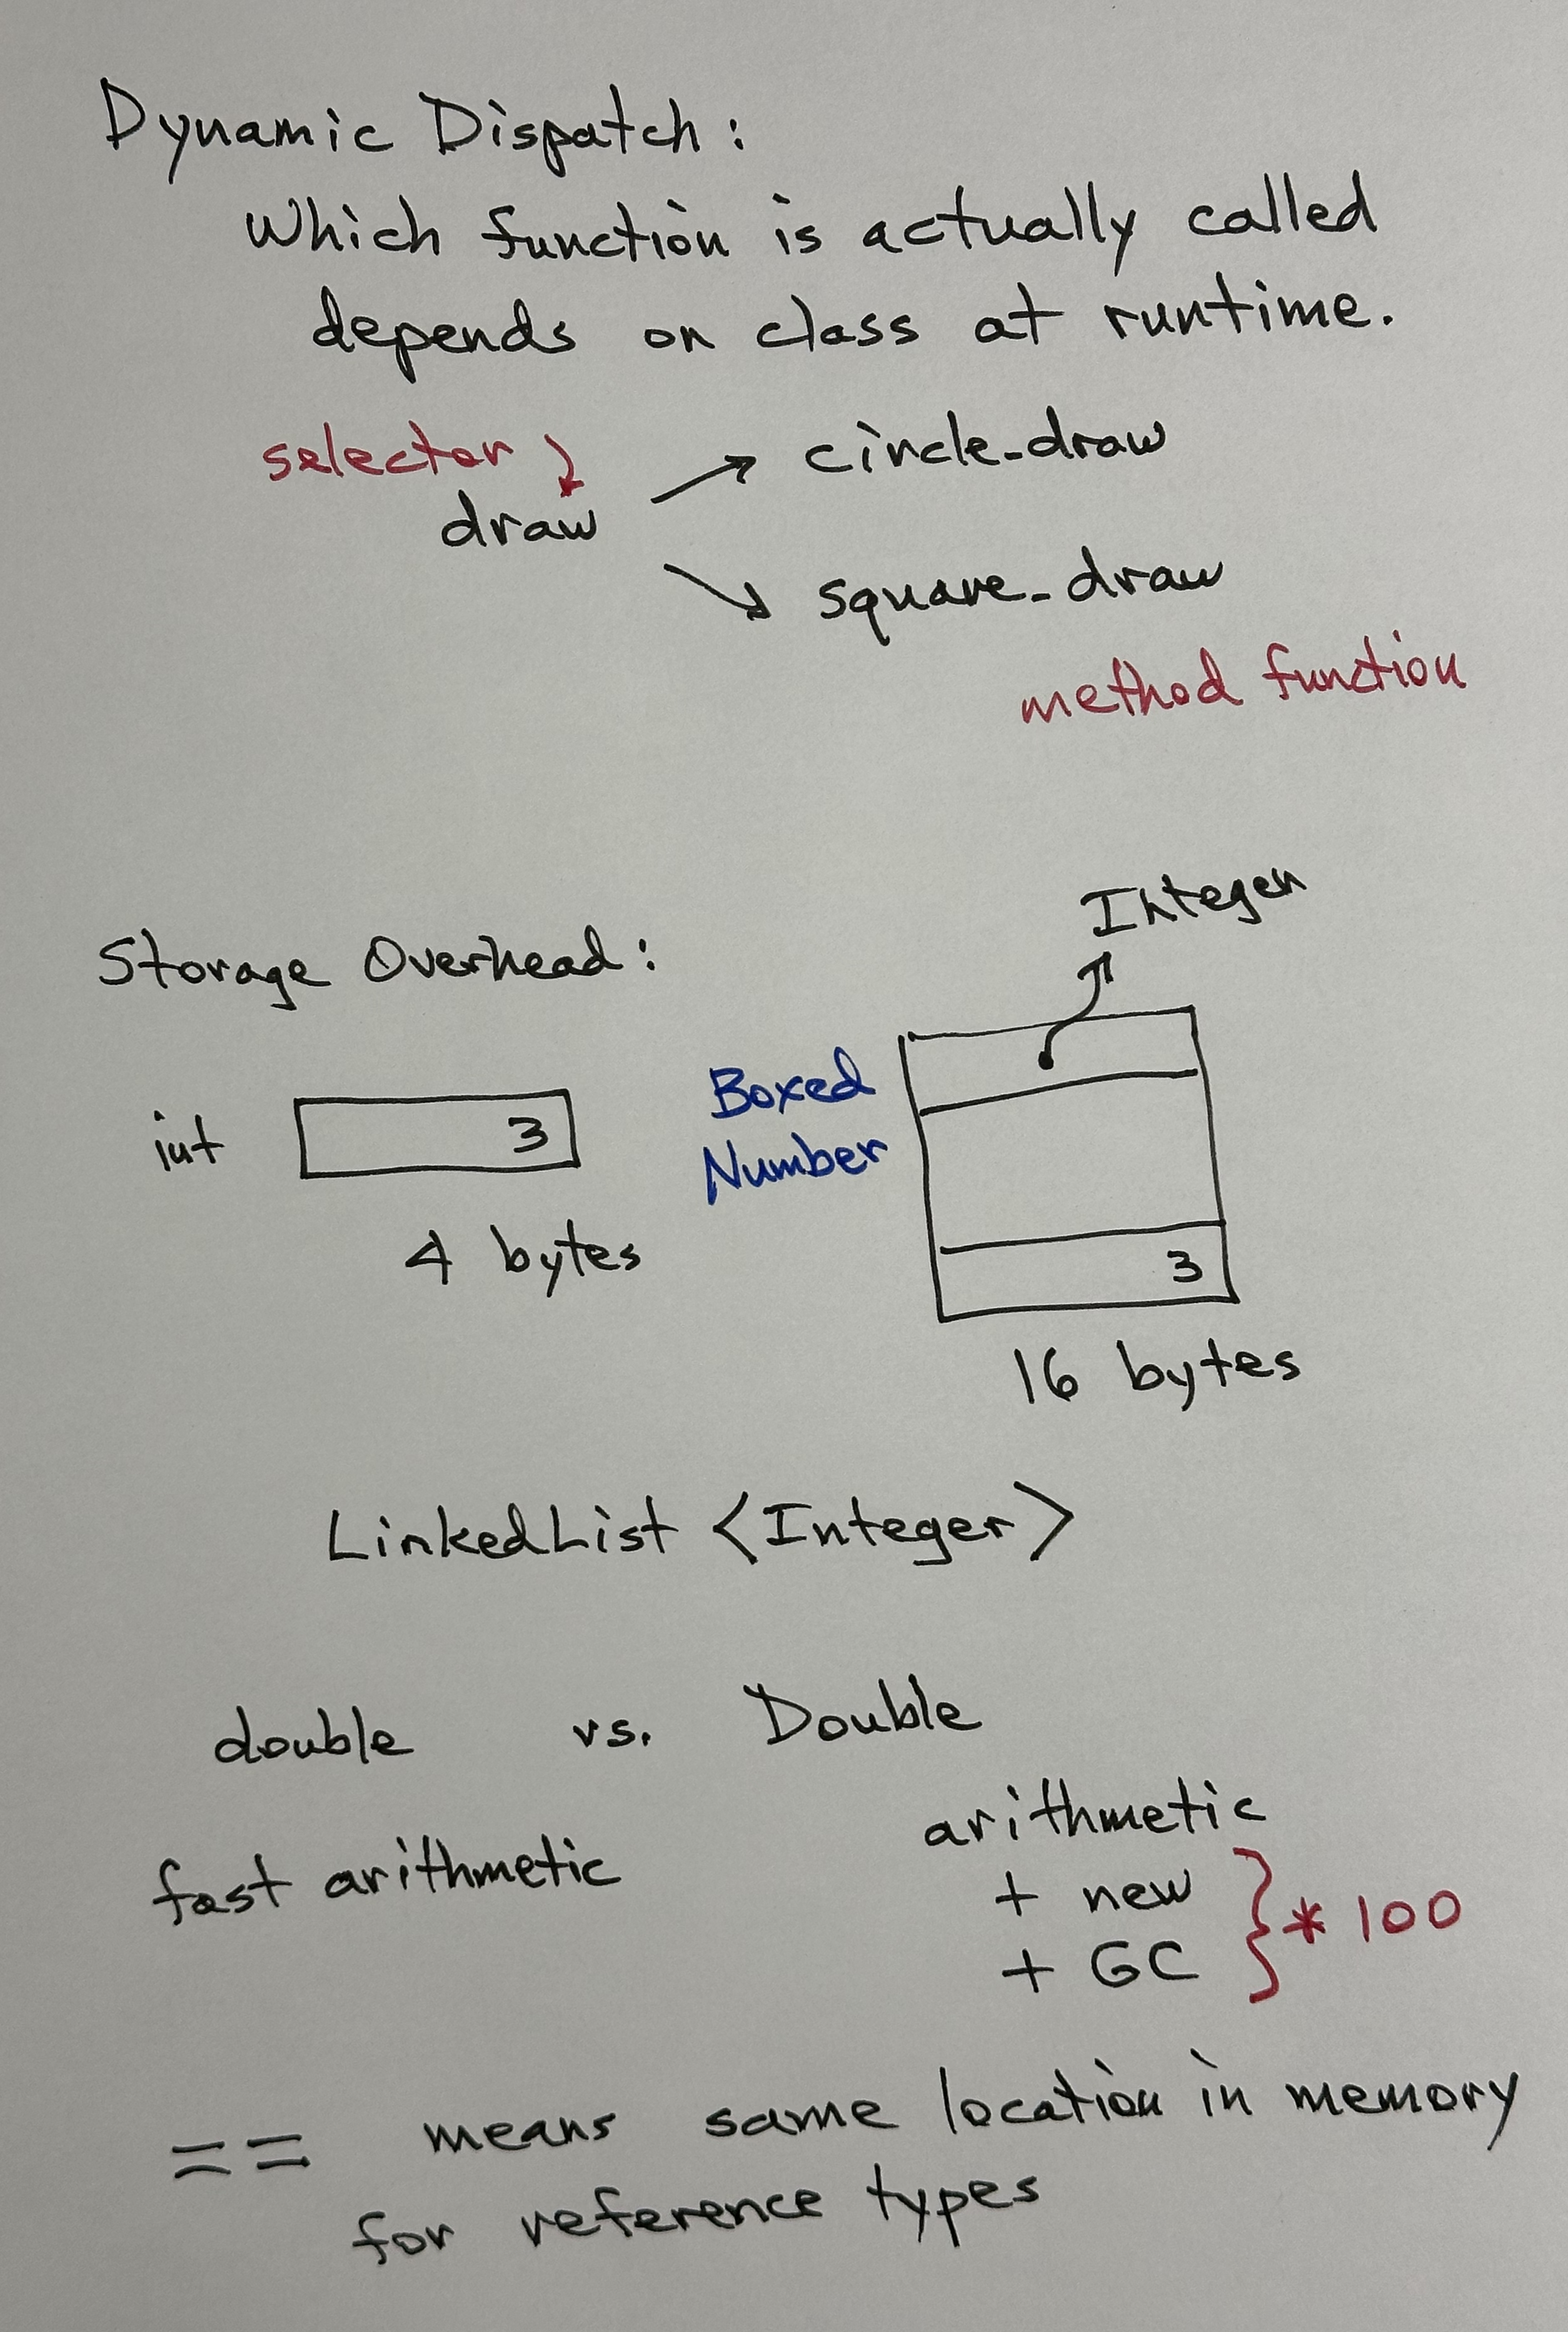 Dynamic Dispatch:
Which function is actually called
depends on class at runtime.
selector
draw → circle_draw
↘ square_draw
method function
Integer
Storage Overhead:
Boxed
Number
int 3
3
4 bytes
16 bytes
LinkedList <Integer>
double vs. Double
fast arithmetic
arithmetic
+ new
+ GC } * 100
== means same location in memory
for reference types